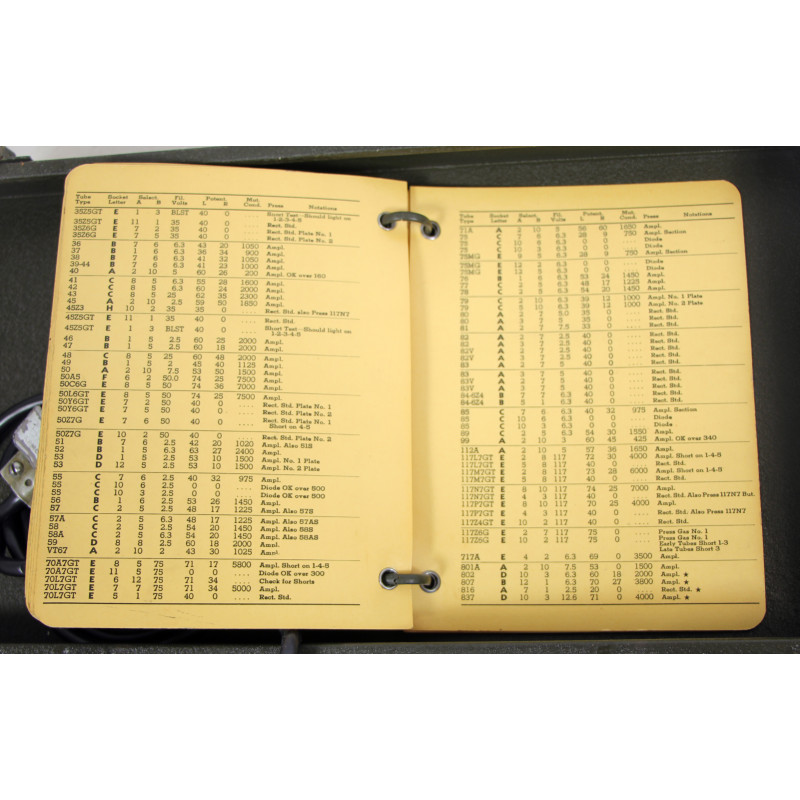 Tube Type Socket Letter Select. A B Fil. Volts Potent. L R Mut. Cond. Press Notations
35Z5GT E 1 3 BLST 40 0 .... Short Test—Should light on 1-2-3-4-5
35Z5GT E 11 1 35 40 0 .... Rect. Std.
35Z6G E 7 2 35 40 0 .... Rect. Std. Plate No. 1
35Z6G E 7 5 35 40 0 .... Rect. Std. Plate No. 2
36 B 7 6 6.3 43 20 1050 Ampl.
37 B 1 6 6.3 36 34 900 Ampl.
38 B 7 6 6.3 41 32 1050 Ampl.
39-44 B 7 6 6.3 41 23 1000 Ampl.
40 A 2 10 5 60 26 200 Ampl. OK over 160
41 C 8 5 6.3 55 28 1600 Ampl.
42 C 8 5 6.3 60 24 2000 Ampl.
43 C 8 5 25 62 35 2300 Ampl.
45 A 2 10 2.5 59 50 1850 Ampl.
45Z3 H 10 2 35 35 0 .... Rect. Std. also Press 117N7
45Z5GT E 11 1 35 40 0 .... Rect. Std.
45Z5GT E 1 3 BLST 40 0 .... Short Test—Should light on 1-2-3-4-5
46 B 1 5 2.5 60 25 2000 Ampl.
47 B 1 5 2.5 60 18 2000 Ampl.
48 C 8 5 25 60 48 2000 Ampl.
49 B 1 5 2 45 40 1125 Ampl.
50 A 2 10 7.5 53 50 1500 Ampl.
50A5 F 6 2 50.0 74 25 7500 Ampl.
50C6G E 8 5 50 74 36 7000 Ampl.
50L6GT E 8 5 50 74 25 7500 Ampl.
50Y6GT E 7 2 50 40 0 .... Rect. Std. Plate No. 1
50Y6GT E 7 5 50 40 0 .... Rect. Std. Plate No. 2
50Z7G E 7 6 50 40 0 .... Rect. Std. Plate No. 1 Short on 4-5
50Z7G E 10 2 50 40 0 .... Rect. Std. Plate No. 2
51 B 7 6 2.5 42 20 1020 Ampl. Also 51S
52 B 1 5 6.3 63 27 2400 Ampl.
53 D 1 5 2.5 53 10 1500 Ampl. No. 1 Plate
53 D 12 5 2.5 53 10 1500 Ampl. No. 2 Plate
55 C 7 6 2.5 40 32 975 Ampl.
55 C 10 6 2.5 0 0 .... Diode OK over 500
55 C 10 3 2.5 0 0 .... Diode OK over 500
56 B 1 6 2.5 53 26 1450 Ampl.
57 C 2 5 2.5 48 17 1225 Ampl. Also 57S
57A C 2 5 6.3 48 17 1225 Ampl. Also 57AS
58 C 2 5 2.5 54 20 1450 Ampl. Also 58S
58A C 2 5 6.3 54 20 1450 Ampl. Also 58AS
59 D 8 8 2.5 60 18 2000 Ampl.
VT67 A 2 10 2 43 30 1025 Ampl.
70A7GT E 8 5 75 71 17 5800 Ampl. Short on 1-4-5
70A7GT E 11 5 75 0 0 .... Diode OK over 300
70L7GT E 6 12 75 71 34 .... Check for Shorts
70L7GT E 7 7 75 71 34 5000 Ampl.
70L7GT E 5 1 75 40 0 .... Rect. Std.
Tube Type Socket Letter Select. A B Fil. Volts Potent. L R Mut. Cond. Press Notations
71A A 2 10 5 56 60 1650 Ampl.
75 C 7 6 6.3 28 9 750 Ampl. Section
75 C 10 6 6.3 0 0 .... Diode
75 C 10 3 6.3 0 0 .... Diode
75MG E 9 5 6.3 28 9 750 Ampl. Section
75MG E 12 2 6.3 0 0 .... Diode
75MG E 12 5 6.3 0 0 .... Diode
76 B 1 6 6.3 53 24 1450 Ampl.
77 C 2 5 6.3 48 17 1225 Ampl.
78 C 2 5 6.3 54 20 1450 Ampl.
79 C 2 10 6.3 39 12 1000 Ampl. No. 1 Plate
79 C 5 10 6.3 39 12 1000 Ampl. No. 2 Plate
80 A 2 7 5.0 35 0 .... Rect. Std.
80 A 3 7 5 35 0 .... Rect. Std.
81 A 2 7 7.5 33 0 .... Rect. Std.
82 A 2 7 2.5 40 0 .... Rect. Std.
82 A 3 7 2.5 40 0 .... Rect. Std.
82V A 2 7 2.5 40 0 .... Rect. Std.
82V A 3 7 2.5 40 0 .... Rect. Std.
83 A 2 7 5 40 0 .... Rect. Std.
83 A 3 7 5 40 0 .... Rect. Std.
83V A 2 7 5 40 0 .... Rect. Std.
83V A 3 7 5 40 0 .... Rect. Std.
84-6Z4 B 7 7 6.3 40 0 .... Rect. Std.
84-6Z4 B 5 1 6.3 40 0 .... Rect. Std.
85 C 7 6 6.3 40 32 975 Ampl. Section
85 C 10 6 6.3 0 0 .... Diode
85 C 10 3 6.3 0 0 .... Diode
89 C 2 5 6.3 54 30 1550 Ampl.
99 A 2 10 3 60 45 425 Ampl. OK over 340
112A A 2 10 5 57 36 1650 Ampl.
117L7GT E 2 8 117 72 30 4000 Ampl. Short on 1-4-5
117L7GT E 5 8 117 40 0 .... Rect. Std.
117M7GT E 2 8 117 73 28 6000 Ampl. Short on 1-4-5
117M7GT E 5 8 117 40 0 .... Rect. Std.
117N7GT E 8 10 117 74 25 7000 Ampl.
117N7GT E 4 3 117 40 0 .... Rect. Std. Also Press 117N7 But.
117P7GT E 8 10 117 70 25 4000 Ampl.
117P7GT E 4 3 117 40 0 .... Rect. Std. Also Press 117N7
117Z4GT E 10 2 117 40 0 .... Rect. Std.
117Z6G E 7 2 117 75 0 .... Press Gas No. 1
117Z6G E 10 2 117 75 0 .... Press Gas No. 1 Early Tubes Short 1-3 Late Tubes Short 3
717A E 4 2 6.3 69 0 3500 Ampl.
801A A 2 10 7.5 53 0 1500 Ampl.
802 D 10 3 6.3 60 18 2000 Ampl. ★
807 B 12 1 6.3 70 27 3800 Ampl. ★
816 A 7 1 2.5 20 0 Rect. Std. ★
837 D 10 3 12.6 71 0 4000 Ampl. ★